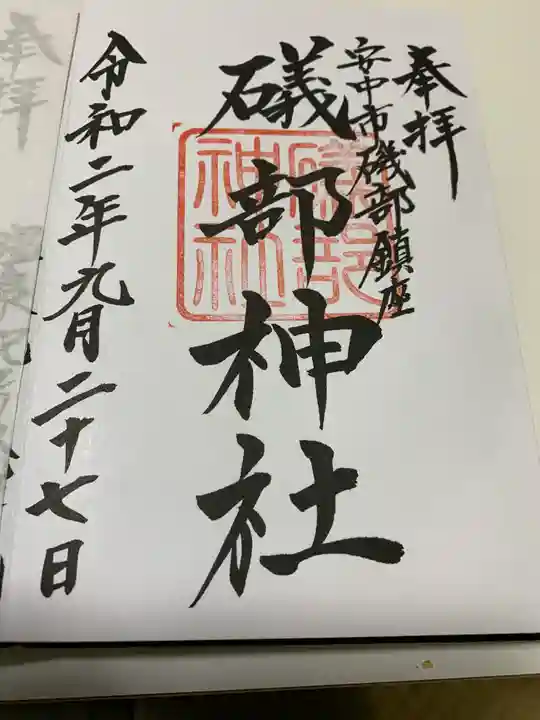 奉拝
安中市磯部鎮座
礒部神社
礒部
神社
令和二年九月二十七日
奉拝